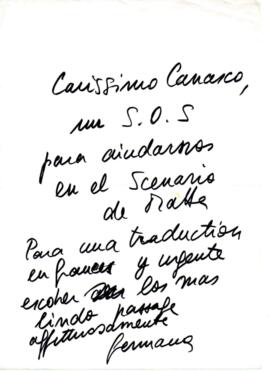 Carissimo Canasco,
un S.O.S
para aiudarnos
en el Scenario
de Matta
Para una traduction
en frances y urgente
escoher los mas
lindo passage
affettuosamente
germana